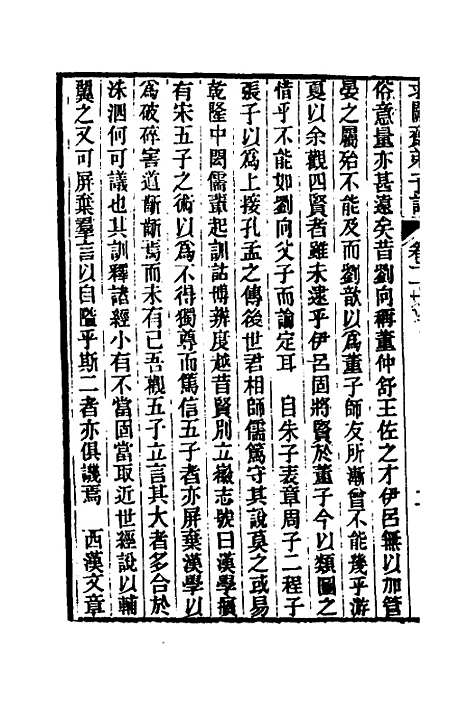 求闕齋弟子記 卷二十
俗意量亦甚遠矣昔劉向稱董仲舒王佐之才伊呂無以加管
晏之屬殆不能及而劉歆以爲董子師友所漸曾不能幾乎游
夏以余觀四賢者雖未逮乎伊呂固將賢於董子今以類圖之
惜乎不能如劉向父子而論定耳　自朱子表章周子二程子
張子以爲上接孔孟之傳後世君相師儒篤守其說莫之或易
乾隆中閎儒輩起訓詁博辨度越昔賢別立徽志號曰漢學擯
有宋五子之術以爲不得獨尊而篤信五子者亦屏棄漢學以
爲破碎害道齗齗焉而未有已吾觀五子立言其大者多合於
洙泗何可議也其訓釋諸經小有不當固當取近世經說以輔
翼之又可屏棄羣言以自隘乎斯二者亦俱譏焉　西漢文章